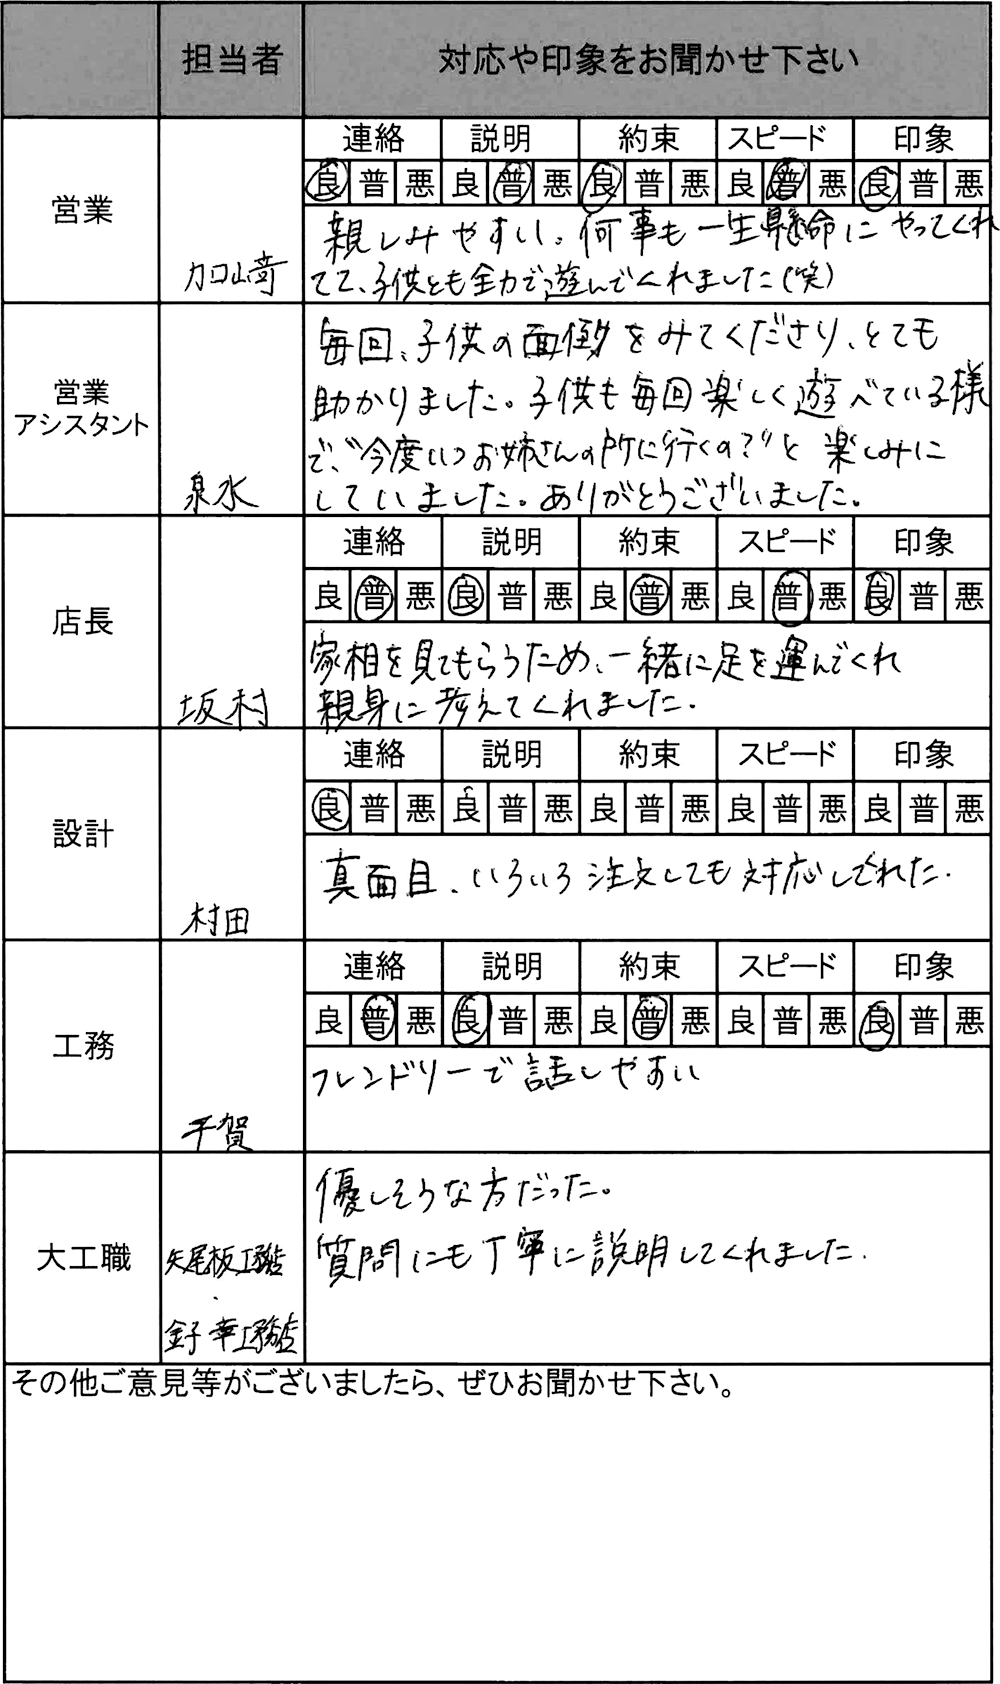 担当者 対応や印象をお聞かせ下さい
連絡 説明 約束 スピード 印象
良 普 悪 良 普 悪 良 普 悪 良 普 悪 良 普 悪
営業
親しみやすい。何事も一生懸命にやってくれ
てて、子供とも全力で遊んでくれました(笑)
毎回、子供の面倒をみてくださり、とても
営業
アシスタント
助かりました。子供も毎回楽しく遊べている様
で、"今度いつお姉さんの所に行くの?"と楽しみに
泉水
していました。ありがとうございました。
連絡 説明 約束 スピード 印象
良 普 悪 良 普 悪 良 普 悪 良 普 悪 良 普 悪
店長
家相を見てもらうため、一緒に足を運んでくれ
坂村
親身に考えてくれました.
連絡 説明 約束 スピード 印象
良 普 悪 良 普 悪 良 普 悪 良 普 悪 良 普 悪
設計
真面目、いろいろ注文しても対応してくれた.
村田
連絡 説明 約束 スピード 印象
良 普 悪 良 普 悪 良 普 悪 良 普 悪 良 普 悪
工務
フレンドリーで話しやすい
千賀
優しそうな方だった。
大工職
矢尾板工務店
・
金子幸工務店
質問にも丁寧に説明してくれました.
その他ご意見等がございましたら、ぜひお聞かせ下さい。